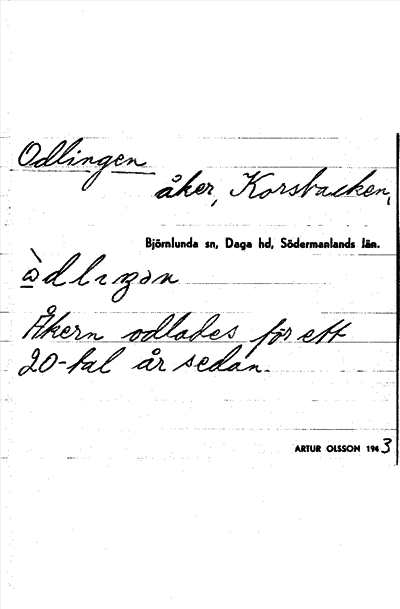 Odlingen
åker, Korsbacken,
Björnlunda sn, Daga hd, Södermanlands län.
Åkern odlades för ett
20-tal år sedan.
ARTUR OLSSON 1943